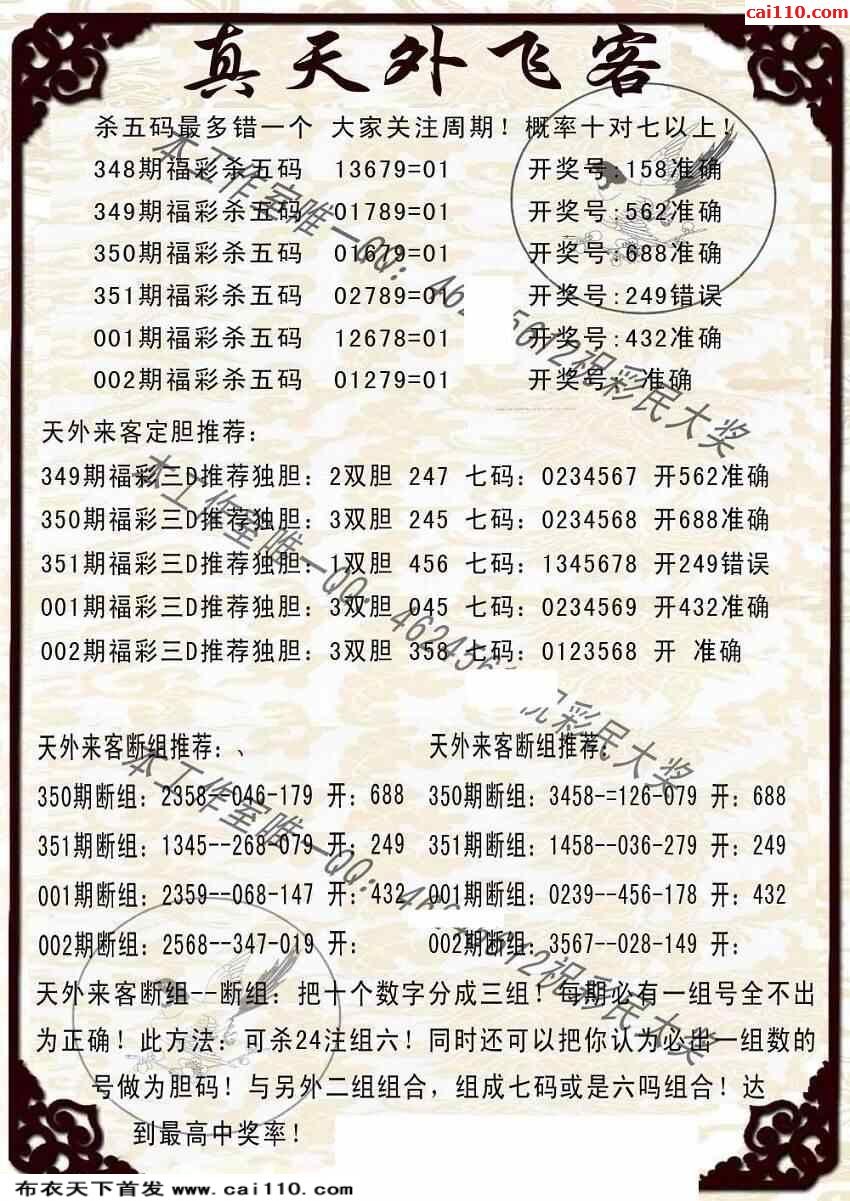 cai110.com
真天外飞客
杀五码最多错一个 大家关注周期！概率十对七以上！
348期福彩杀五码 13679=01 开奖号:158准确
349期福彩杀五码 01789=01 开奖号:562准确
350期福彩杀五码 01679=01 开奖号:688准确
351期福彩杀五码 02789=01 开奖号:249错误
001期福彩杀五码 12678=01 开奖号:432准确
002期福彩杀五码 01279=01 开奖号: 准确
天外来客定胆推荐：
349期福彩三D推荐独胆：2双胆 247 七码：0234567 开562准确
350期福彩三D推荐独胆：3双胆 245 七码：0234568 开688准确
351期福彩三D推荐独胆：1双胆 456 七码：1345678 开249错误
001期福彩三D推荐独胆：3双胆 045 七码：0234569 开432准确
002期福彩三D推荐独胆：3双胆 358 七码：0123568 开 准确
天外来客断组推荐：、
350期断组：2358--046-179 开：688
351期断组：1345--268-079 开：249
001期断组：2359--068-147 开：432
002期断组：2568--347-019 开：
天外来客断组推荐：
350期断组：3458-=126-079 开：688
351期断组：1458--036-279 开：249
001期断组：0239--456-178 开：432
002期断组：3567--028-149 开：
天外来客断组--断组：把十个数字分成三组！每期必有一组号全不出
为正确！此方法：可杀24注组六！同时还可以把你认为必出一组数的
号做为胆码！与另外二组组合，组成七码或是六吗组合！达
到最高中奖率！
本工作室唯一QQ：
祝彩民大奖
本工作室唯一QQ：
彩民大奖
本工作室唯一QQ：
祝彩民大奖
布衣天下首发 www.cai110.com